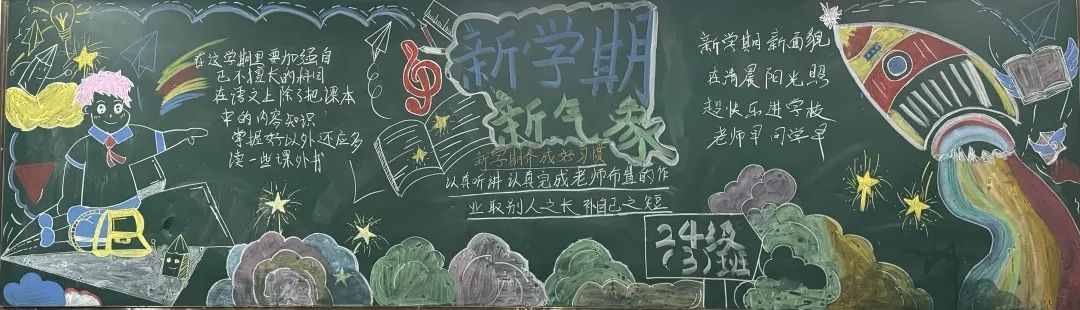 在这学期里要加强自
己不擅长的科目
在语文上除了把课本
中的内容知识
掌握好以外还应多
读一些课外书
新学期
新气象
新学期养成好习惯
认真听讲认真完成老师布置的作
业取别人之长补自己之短
24级
(3)班
新学期新面貌
在清晨阳光照
起快乐进学校
老师早同学早